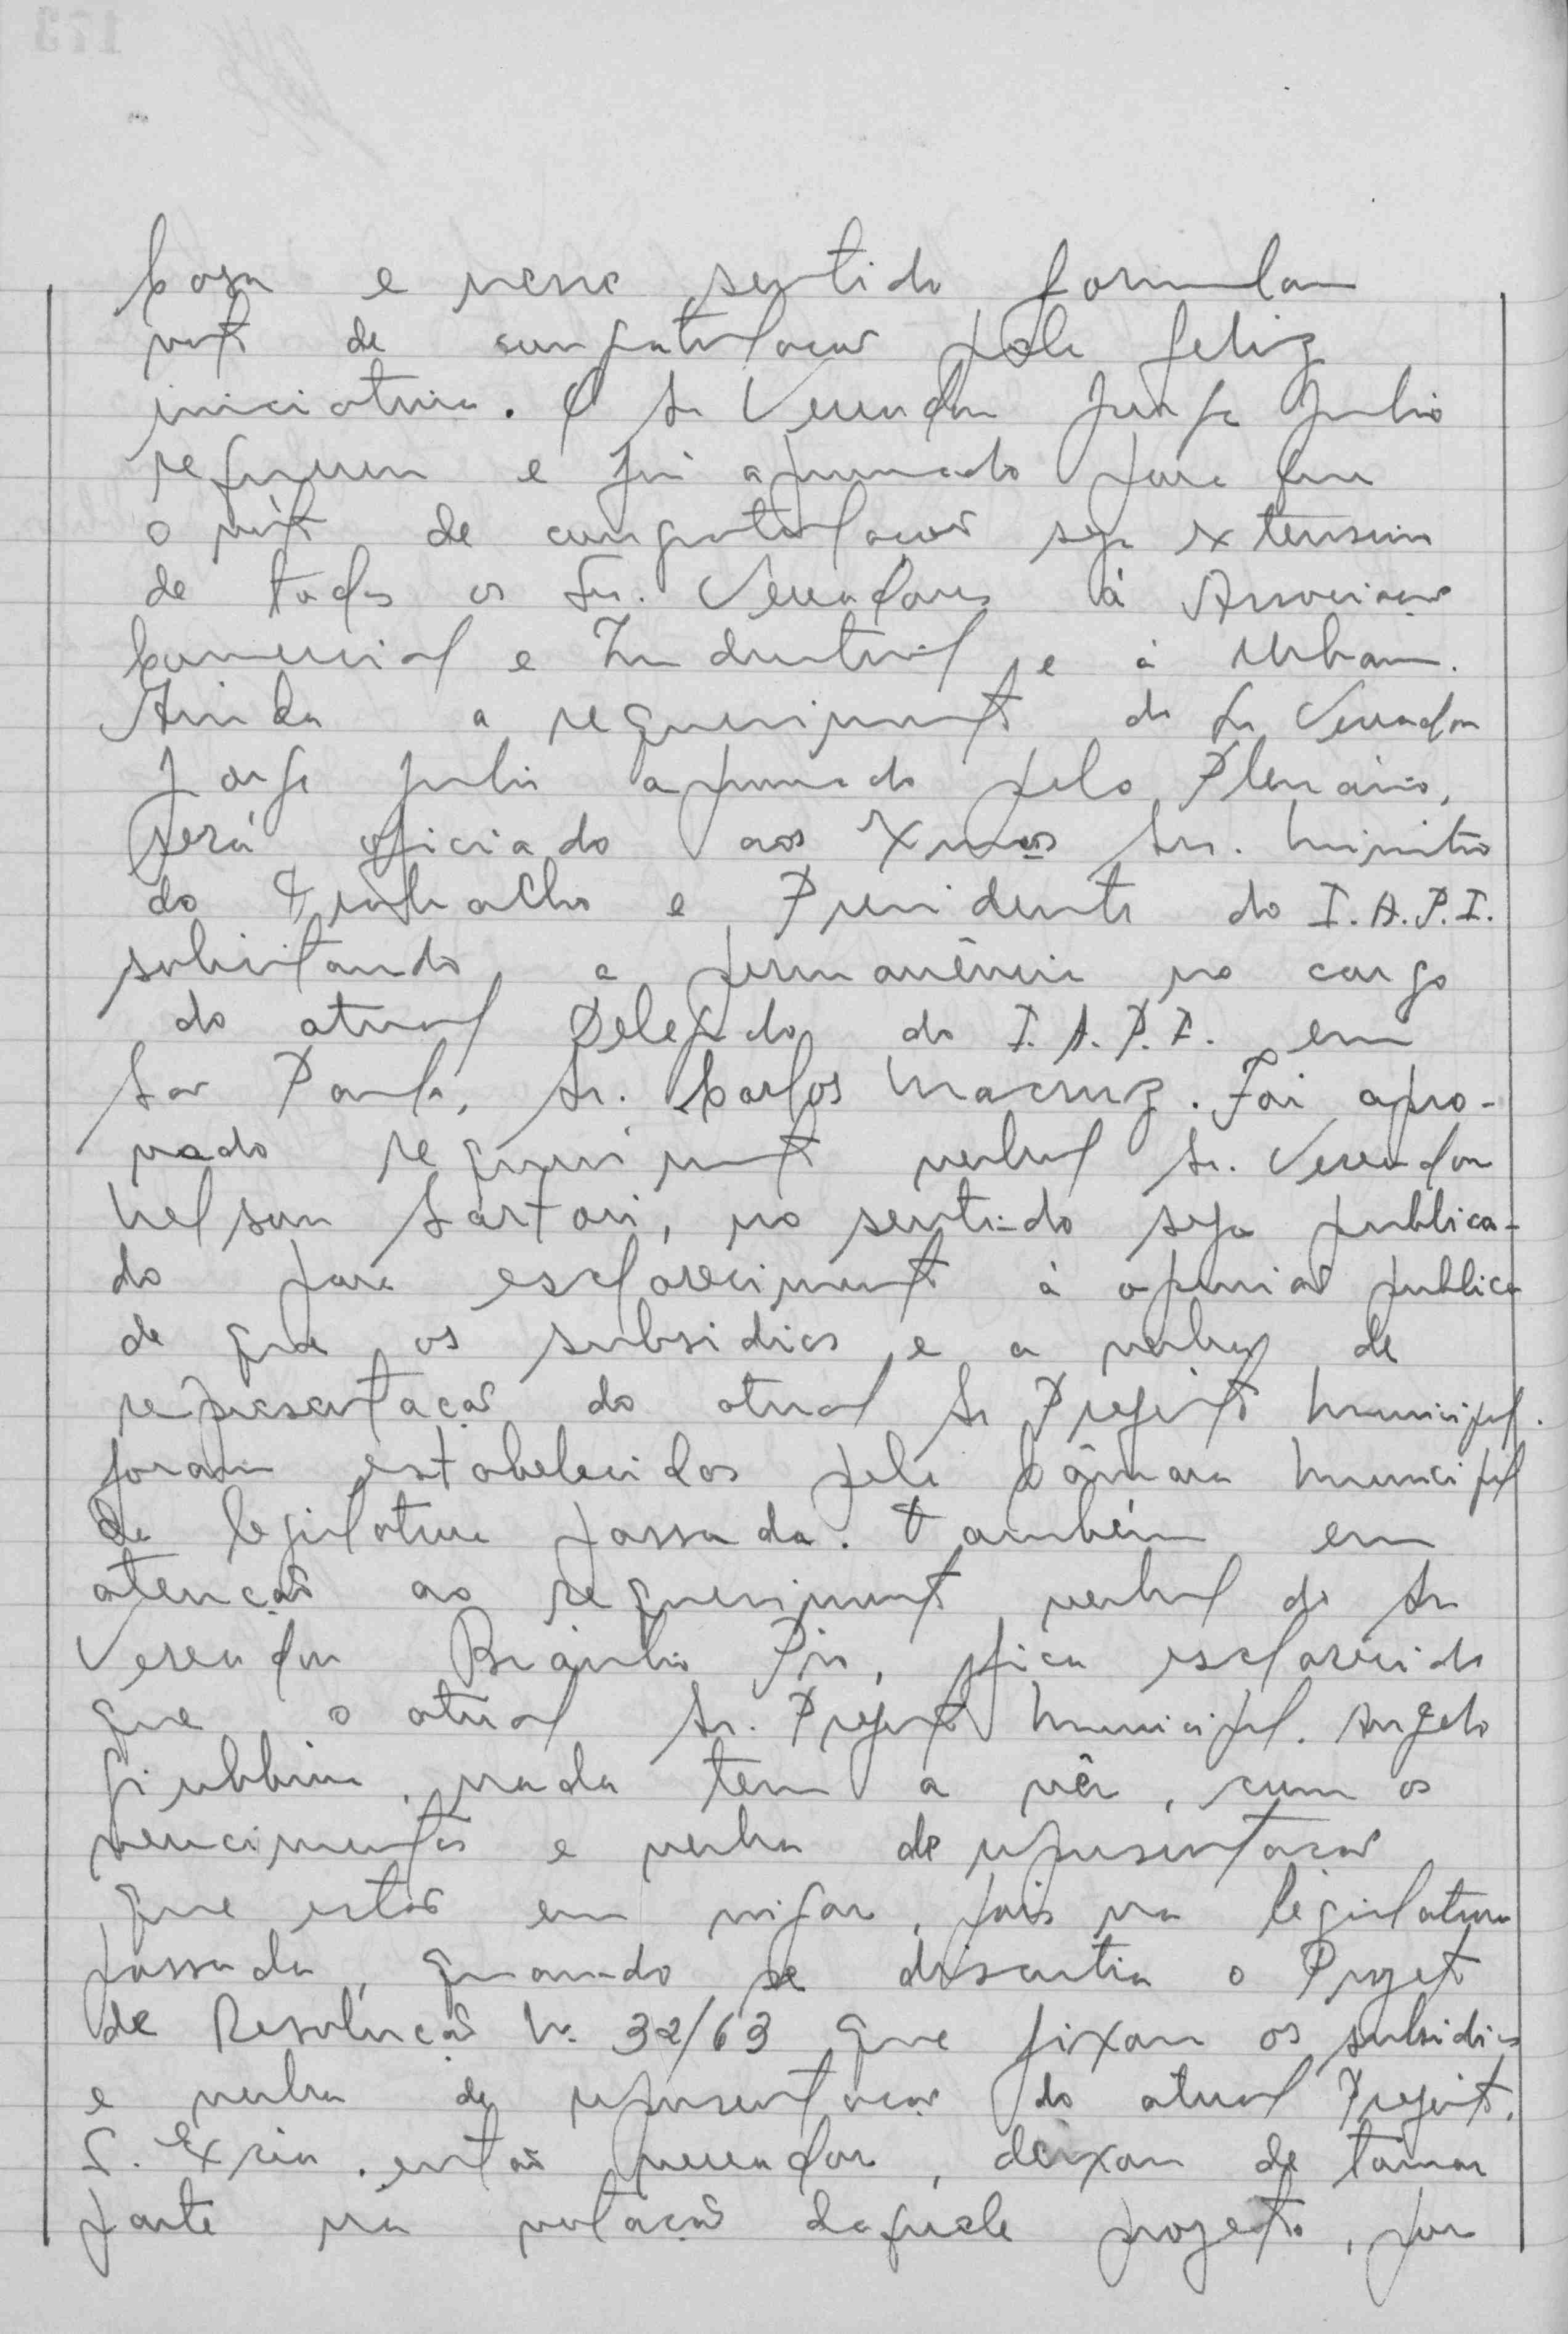 Casa e nesse sentido formulam
voto de congratulações pela feliz
iniciativa. O Sr Vereador Jorge Julio
requereu e foi aprovado para que
o voto de congratulações seja extensivo
de todos os Srs. Vereadores á Associação
Comercial e Industrial e á Urbam.
Ainda a requerimento do Sr Vereador
Jorge Julio aprovado pelo Plenário,
será oficiado aos Exmos Srs. Ministro
do Trabalho e Presidente do I.A.P.I.
solicitando a permanência no cargo
do atual Delegado do I.A.P.I. em
São Paulo, Sr. Carlos Macruz. Foi apro-
vado requerimento verbal Sr. Vereador
Nelson Sartori, no sentido seja publica-
do para esclarecimento á opinião publica
de que os subsidios e a verba de
representação do atual Sr Prefeito Municipal.
foram estabelecidos pela Câmara Municipal
da legislatura passada. Também em
atenção ao requerimento verbal do Sr
Vereador Braúlio Pio, fica esclarecido
que o atual Sr. Prefeito Municipal. Angelo
Giubbina, nada tem a vêr, com os
vencimentos e verba de representação
que estão em vigor, pois na legislatura
passada, quando se discutia o Projeto
de Resolução Nº 32/63 que fixou os subsidios
e verba de representação do atual Prefeito,
S. Excia. então vereador, deixou de tomar
parte na votação daquele projeto, por